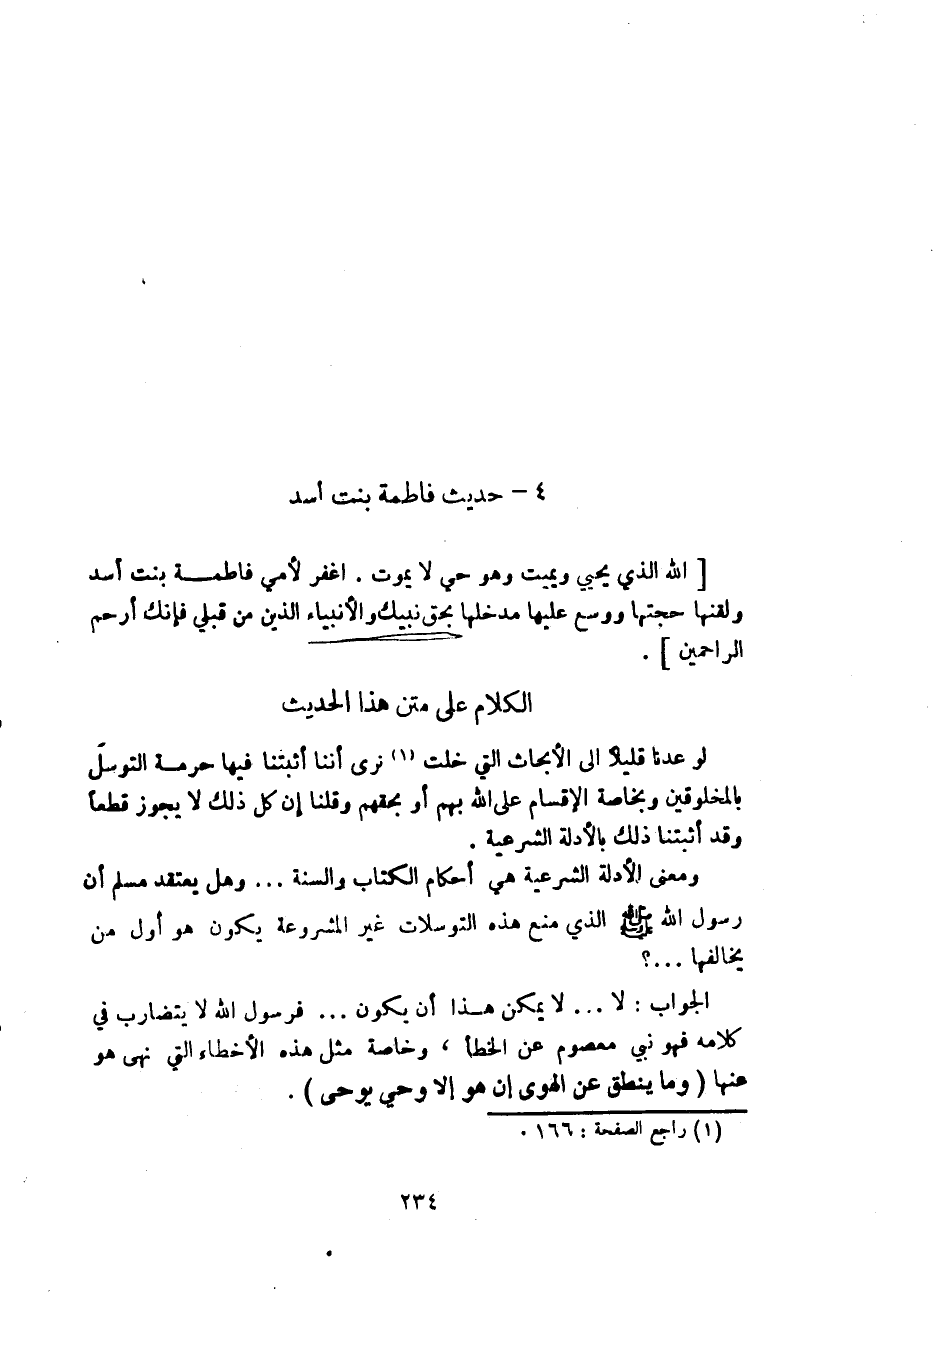 ٤ – حديث فاطمة بنت أسد
[ الله الذي يحيي ويميت وهو حي لا يموت . اغفر لأمي فاطمــة بنت أسد
ولقنها حجتها ووسع عليها مدخلها بحق نبيك والأنبياء الذين من قبلي فإنك أرحم
الراحمين ] .
الكلام على متن هذا الحديث
لو عدنا قليلاً الى الأبحاث التي خلت (١) نرى أننا أثبتنا فيها حرمـة التوسلّ
بالمخلوقين وبخاصة الإقسام على الله بهم أو بحقهم وقلنا إن كل ذلك لا يجوز قطعاً
وقد أثبتنا ذلك بالأدلة الشرعية .
ومعنى الأدلة الشرعية هي أحكام الكتاب والسنة ... وهل يعتقد مسلم أن
رسول الله ﷺ الذي منع هذه التوسلات غير المشروعة يكون هو أول من
يخالفها ...؟
الجواب : لا ... لا يمكن هـذا أن يكون ... فرسول الله لا يتضارب في
كلامه فهو نبي معصوم عن الخطأ ، وخاصة مثل هذه الأخطاء التي نهى هو
عنها ( وما ينطق عن الهوى إن هو إلا وحي يوحى ) .
(١) راجع الصفحة : ١٦٦ .
٢٣٤